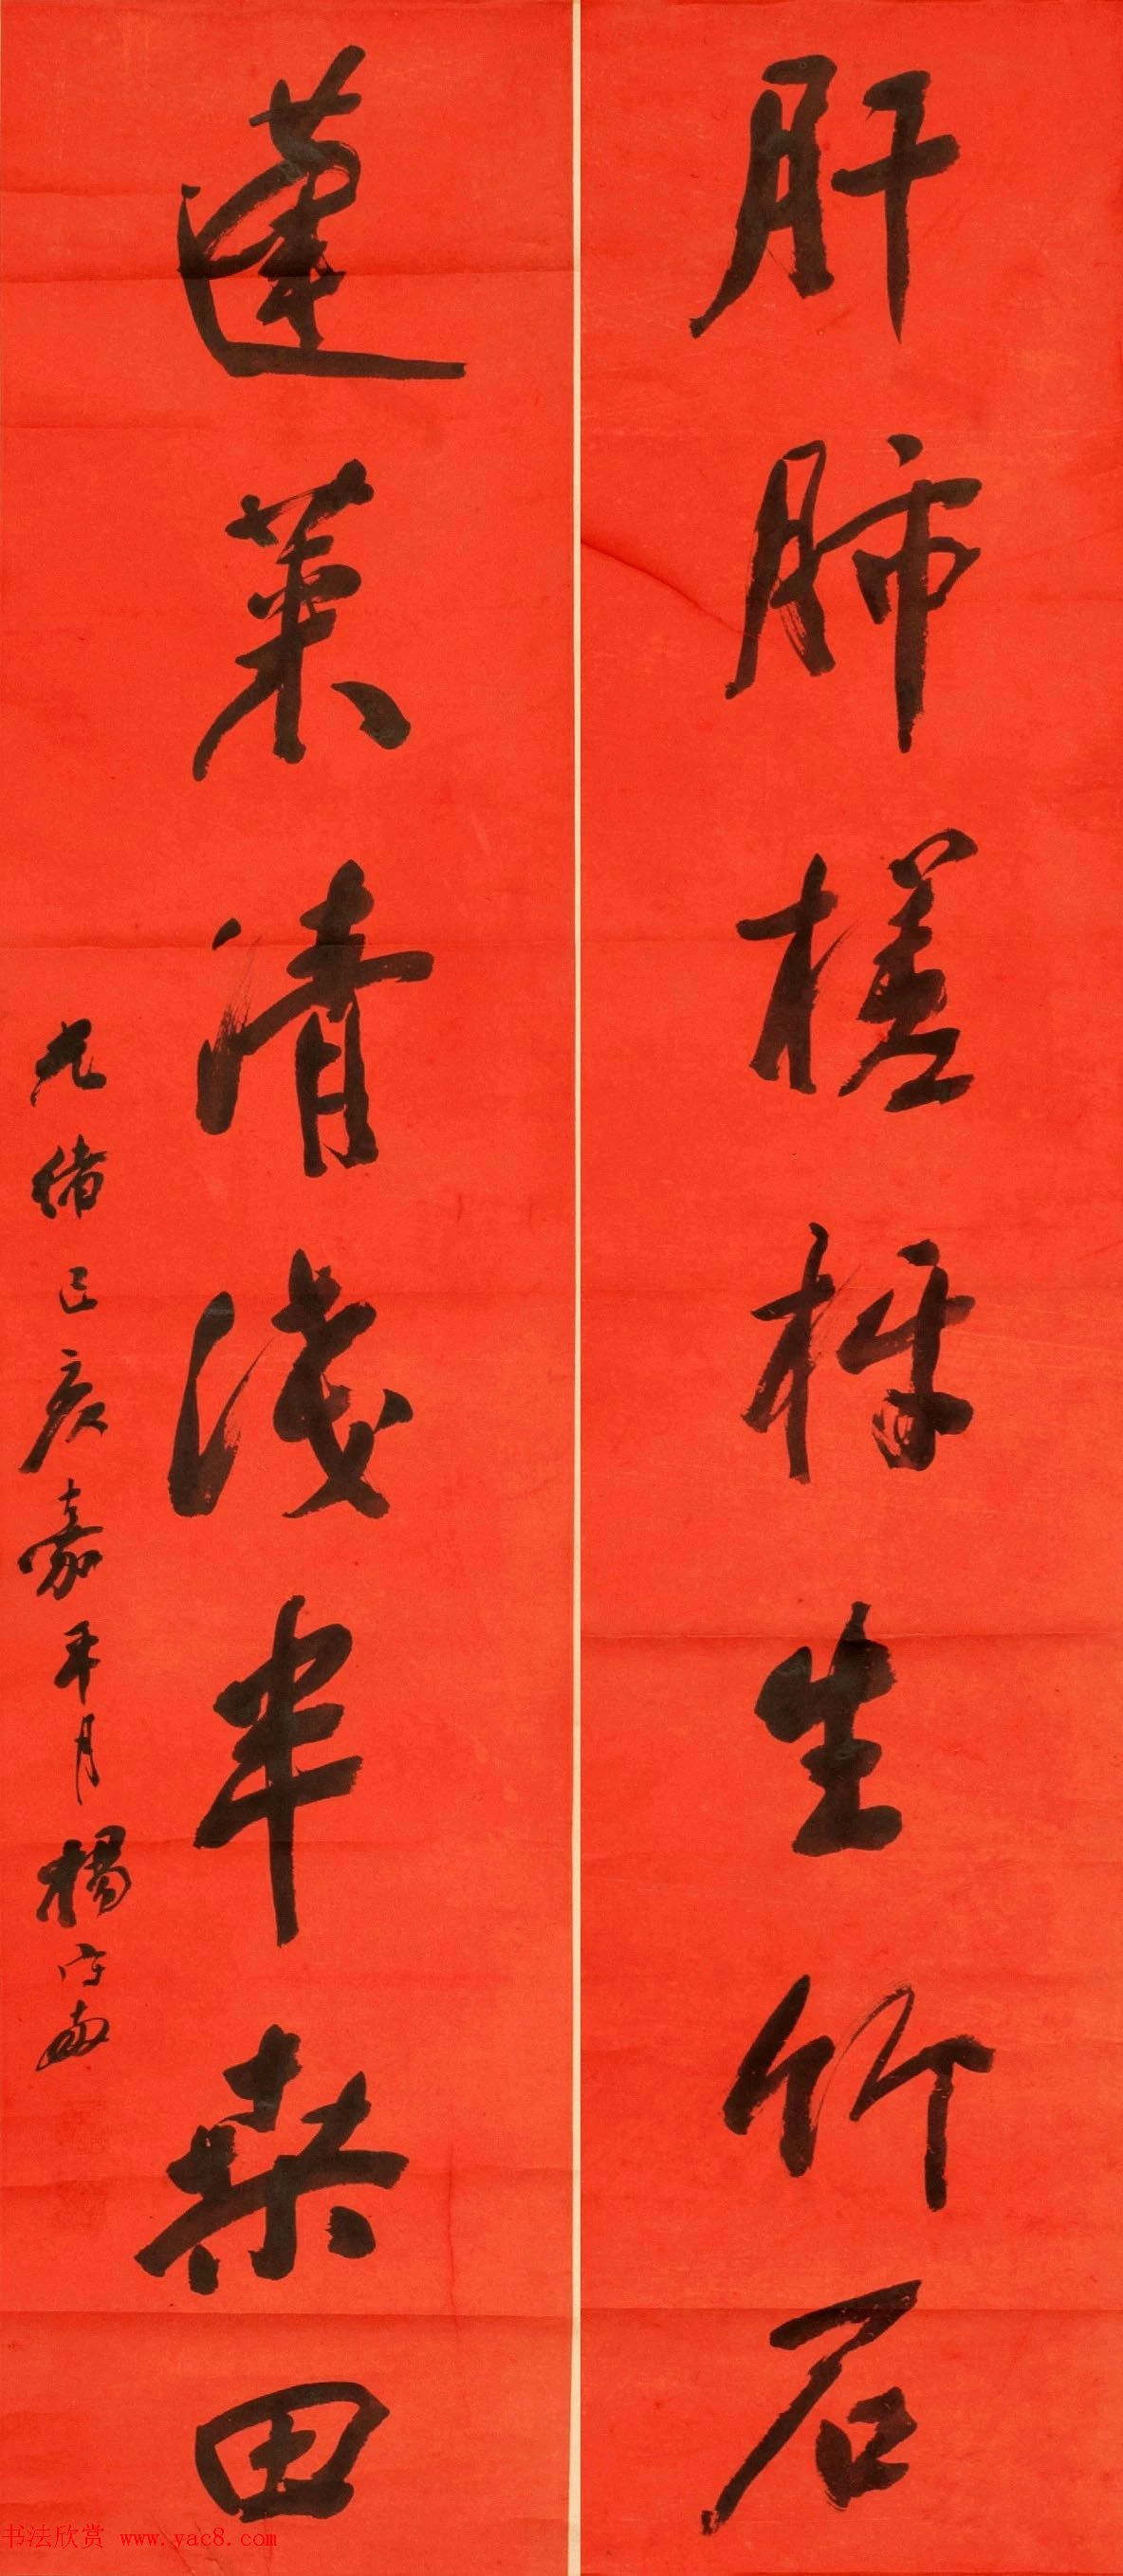 肝肺槎枒生竹石
蓬萊清淺半桑田
光緒己亥嘉平月楊守敬
书法欣赏 www.yac8.com